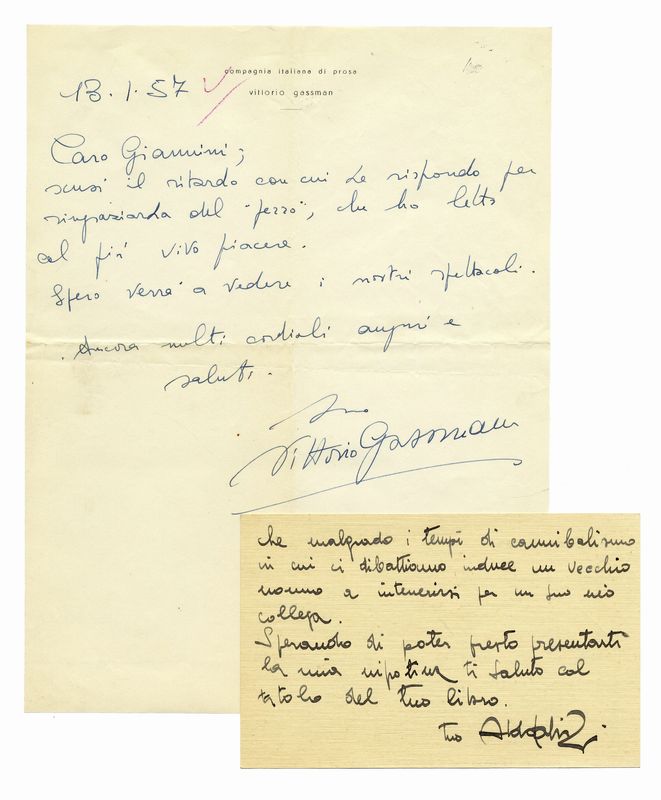 compagnia italiana di prosa
vittorio gassman
13.1.57
Caro Giannini,
scusi il ritardo con cui Le rispondo per
ringraziarla del "pezzo", che ho letto
col più vivo piacere.
Spero verrà a vedere i nostri spettacoli.
Ancora molti cordiali auguri e
saluti.
Suo
Vittorio Gassman
che malgrado i tempi di cannibalismo
in cui ci dibattiamo induce un vecchio
nonno a intenerirsi per un suo
collega.
Sperando di poter presto presentarti
la mia nipotina ti saluto col
titolo del tuo libro.
tuo